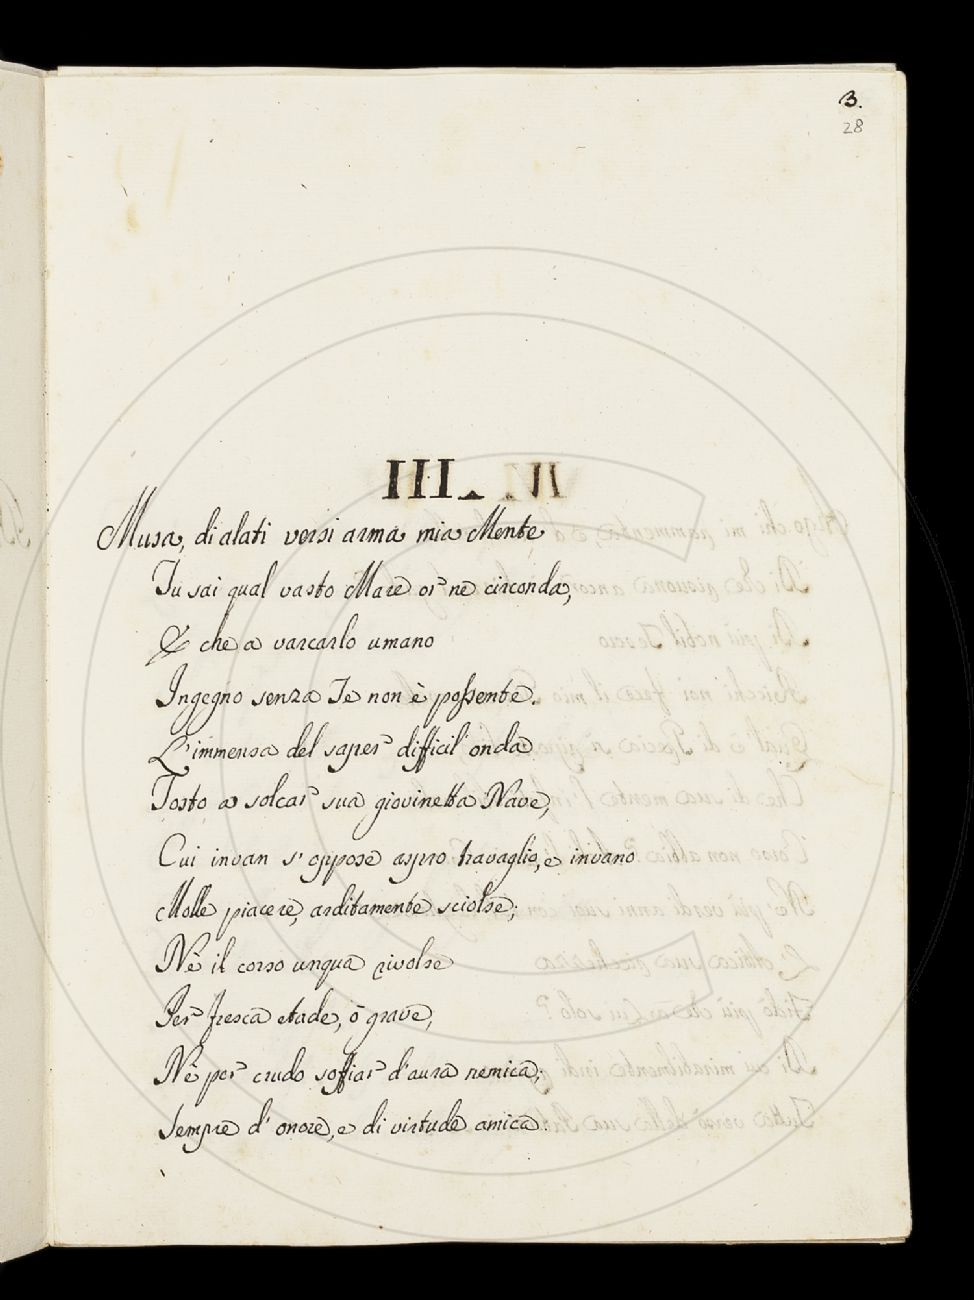 3.
28
III.
Musa, di alati versi arma mia Mente
Tu sai qual vasto Mare or ne circonda,
E che a varcarlo umano
Ingegno senza Te non è possente.
L'immensa del saper difficil' onda
Tosto a solcar sua giovinetta Nave,
Cui invan s' oppose aspro travaglio, e invano
Molle piacere, arditamente sciolse;
Nè il corso unqua rivolse
Per fresca etade, ò grave,
Nè per crudo soffiar d'aura nemica;
Sempre d' onore, e di virtude amica.